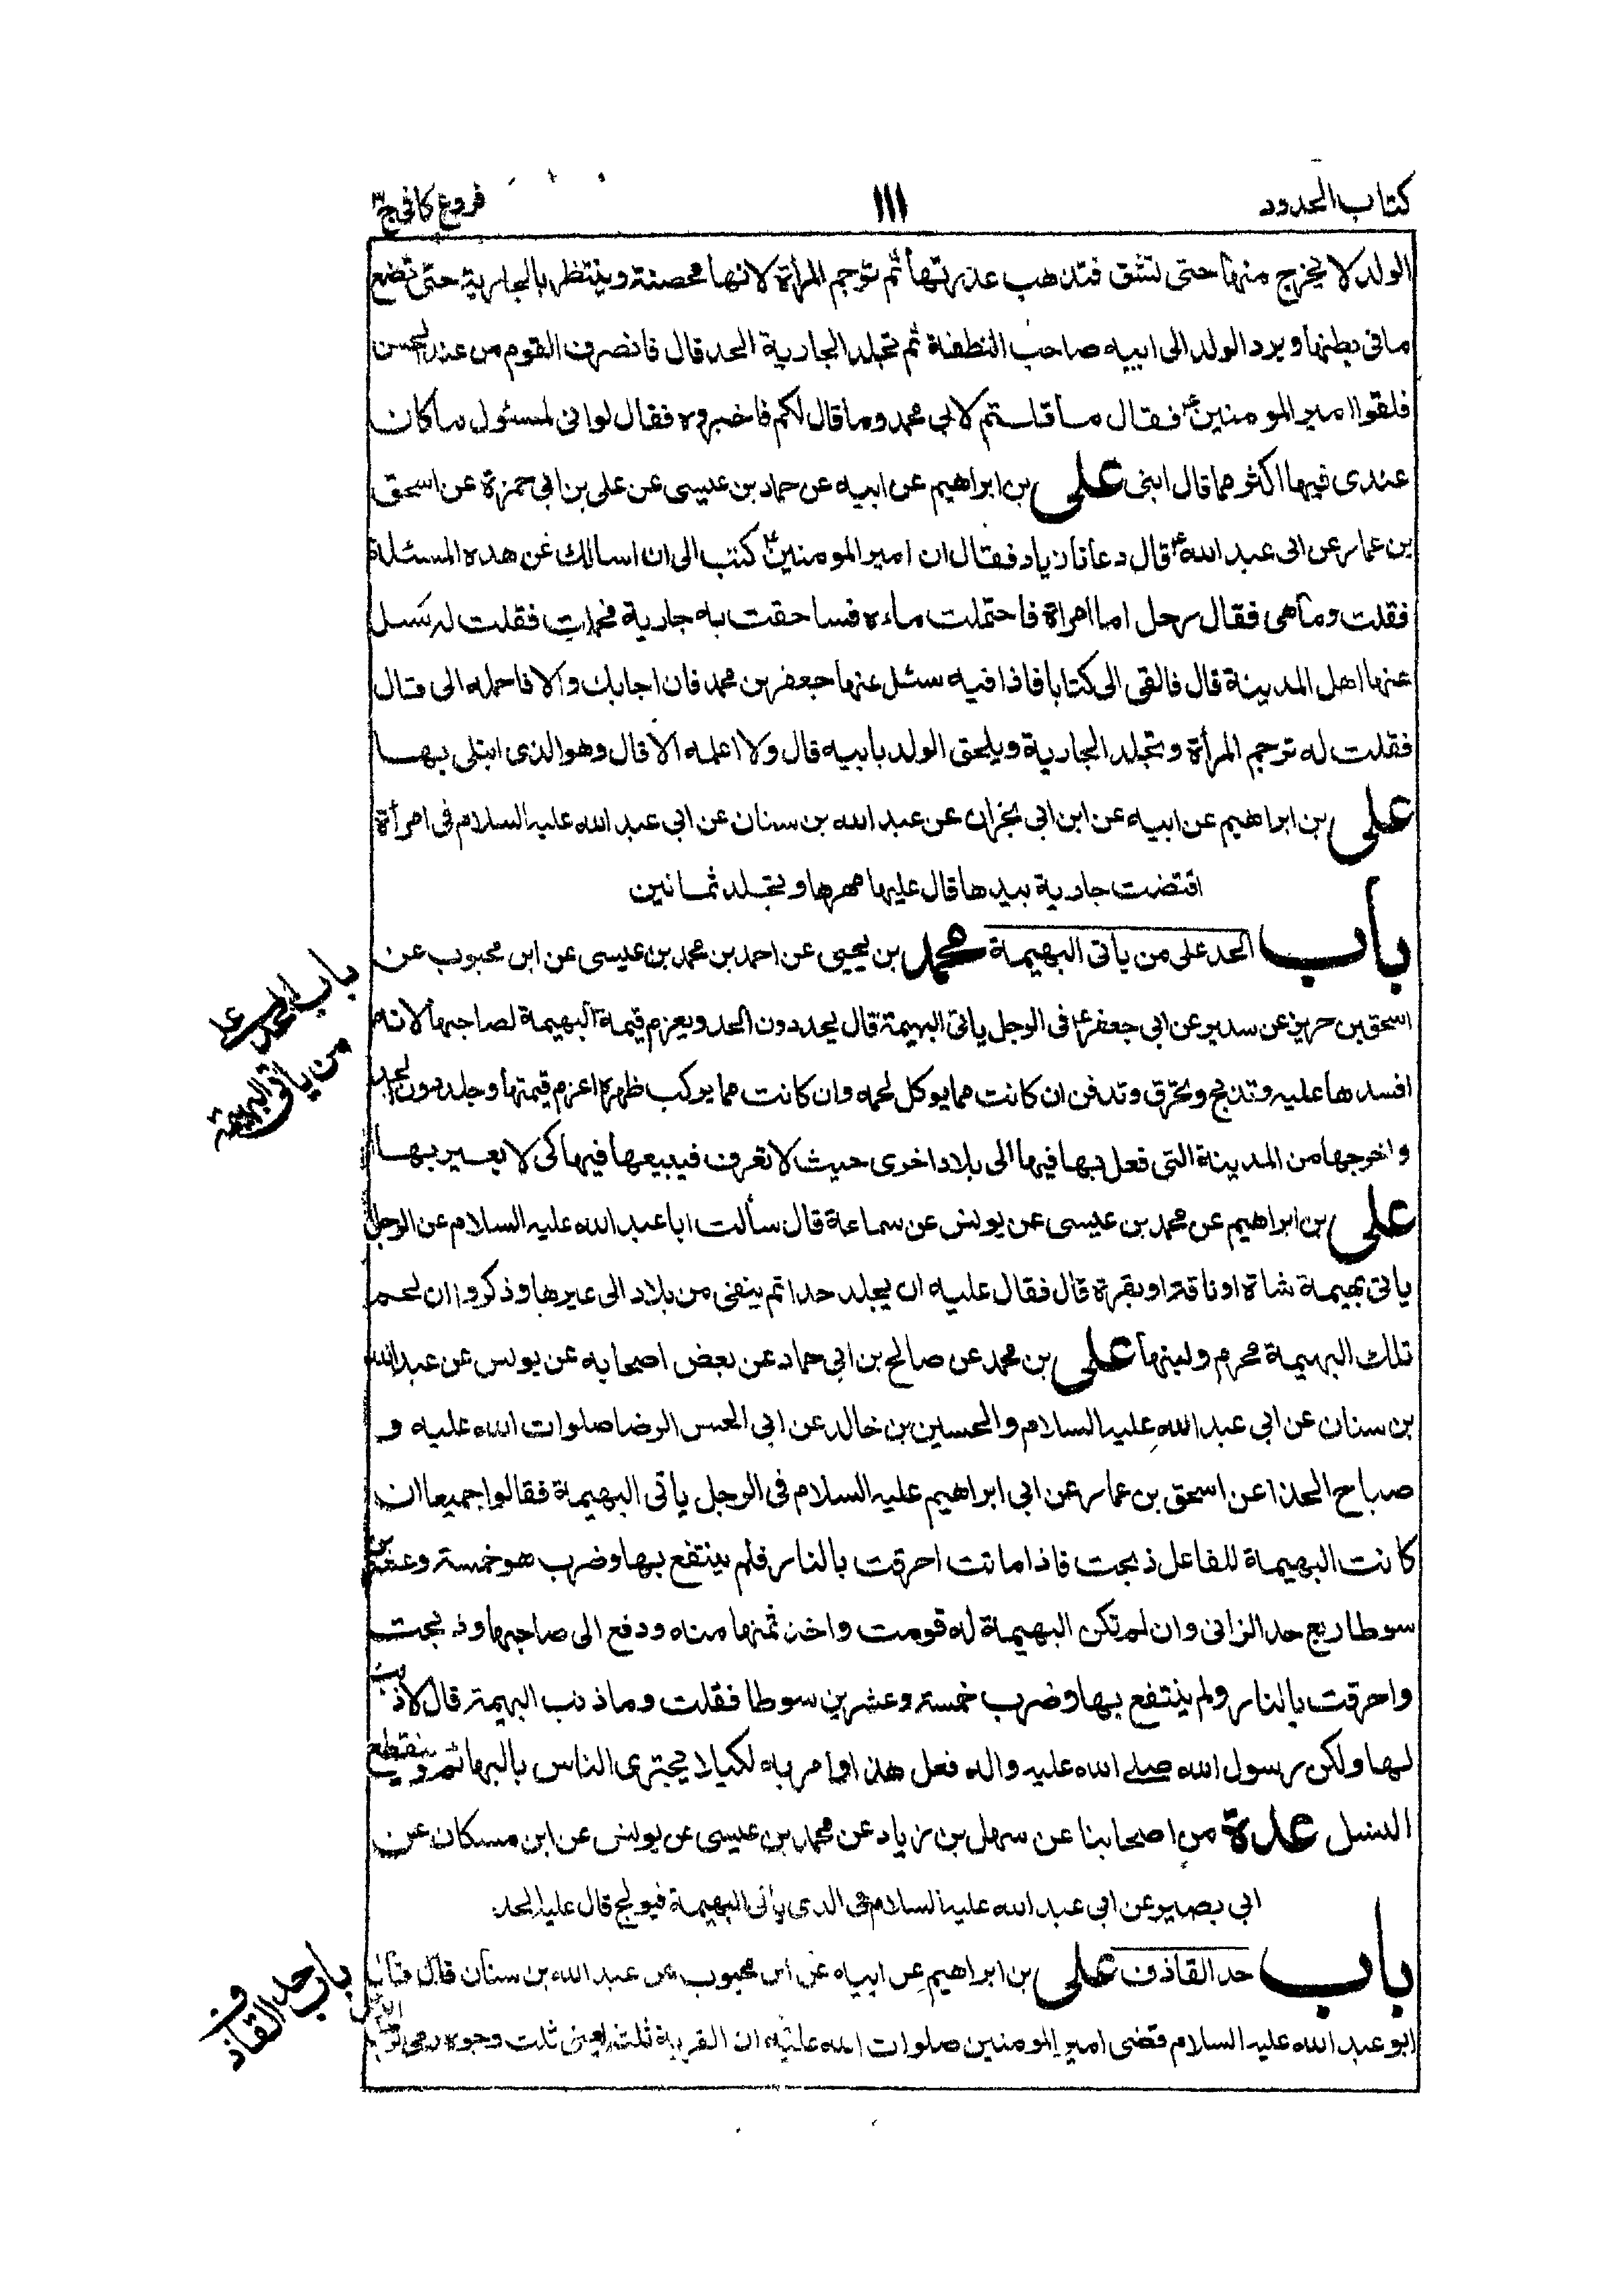 كتاب الحدود
١١١
فروع كافى ج٣
الولد لا يخرج منها حتى تشق فتذهب عذرتها ثم ترجم المرأة لانها محصنة وينتظر بالجارية حتى تضع
ما فى بطنها ويرد الولد الى ابيه صاحب النطفة ثم تجلد الجارية الحد قال فانصرف القوم من عند الحسن
فلقوا امير المومنين ع فقال ما قلتم لابى محمد وما قال لكم فاخبروه فقال لو انى لمسئول ما كان
عندى فيها اكثر مما قال ابنى على بن ابراهيم عن ابيه عن حماد بن عيسى عن على بن ابى حمزة عن اسحق
بن عمار عن ابى عبد الله ع قال دعانا زياد فقال ان امير المومنين كتب الى ان اسالك عن هذه المسئلة
فقلت وما هى فقال رجل اما امراة فاحتملت ماءه فساحقت به جارية فحملت فقلت له سل
عنها اهل المدينة قال فالقى الى كتابا فاذا فيه سئل عنها جعفر بن محمد فان اجابك والا فاحمله الى قال
فقلت له ترجم المرأة وتجلد الجارية ويلحق الولد بابيه قال ولا اعلمه الا قال وهو الذى ابتلى بها
على بن ابراهيم عن ابيه عن ابن ابى نجران عن عبد الله بن سنان عن ابى عبد الله عليه السلام فى امرأة
اقتضت جارية بيدها قال عليها مهرها وتجلد ثمانين
باب الحد على من ياتى البهيمة محمد بن يحيى عن احمد بن محمد بن عيسى عن ابن محبوب عن
اسحق بن حريز عن سدير عن ابى جعفر ع فى الرجل ياتى البهيمة قال يحد دون الحد ويغرم قيمة البهيمة لصاحبها لانه
افسدها عليه وتذبح وتحرق وتدفن ان كانت مما يوكل لحمه وان كانت مما يركب ظهره اغرم قيمتها وجلد دون الحد
واخرجها من المدينة التى فعل بها فيها الى بلاد اخرى حيث لا تعرف فيبيعها فيها كى لا يعير بها
على بن ابراهيم عن محمد بن عيسى عن يونس عن سماعة قال سألت ابا عبد الله عليه السلام عن الرجل
ياتى بهيمة شاة او ناقة او بقرة قال فقال عليه ان يجلد حدا ثم ينفى من بلاد الى غيرها وذكروا ان لحم
تلك البهيمة محرم ولبنها على بن محمد عن صالح بن ابى حماد عن بعض اصحابه عن يونس عن عبد الله
بن سنان عن ابى عبد الله عليه السلام والحسين بن خالد عن ابى الحسن الرضا صلوات الله عليه و
صباح الحذا عن اسحق بن عمار عن ابى ابراهيم عليه السلام فى الرجل ياتى البهيمة فقالوا جميعا ان
كانت البهيمة للفاعل ذبحت فاذا ماتت احرقت بالنار فلم ينتفع بها وضرب هو خمسة وعشرين
سوطا ربع حد الزانى وان لم تكن البهيمة له قومت واخذ ثمنها منه ودفع الى صاحبها وذبحت
واحرقت بالنار ولم ينتفع بها وضرب خمسة وعشرين سوطا فقلت وما ذنب البهيمة قال لا ذنب
لها ولكن رسول الله صلى الله عليه واله فعل هذا وامر به لكيلا يجترى الناس بالبهائم وينقطع
النسل عدة من اصحابنا عن سهل بن زياد عن محمد بن عيسى عن يونس عن ابن مسكان عن
ابى بصير عن ابى عبد الله عليه السلام فى الذى ياتى البهيمة فيولج قال عليه الحد
باب حد القاذف على بن ابراهيم عن ابيه عن ابن محبوب عن عبد الله بن سنان قال قال
ابو عبد الله عليه السلام قضى امير المومنين صلوات الله عليه ان الفرية ثلث يعنى ثلث وجوه رمى الرجل
باب الحد على
من ياتى البهيمة
باب حد القاذف